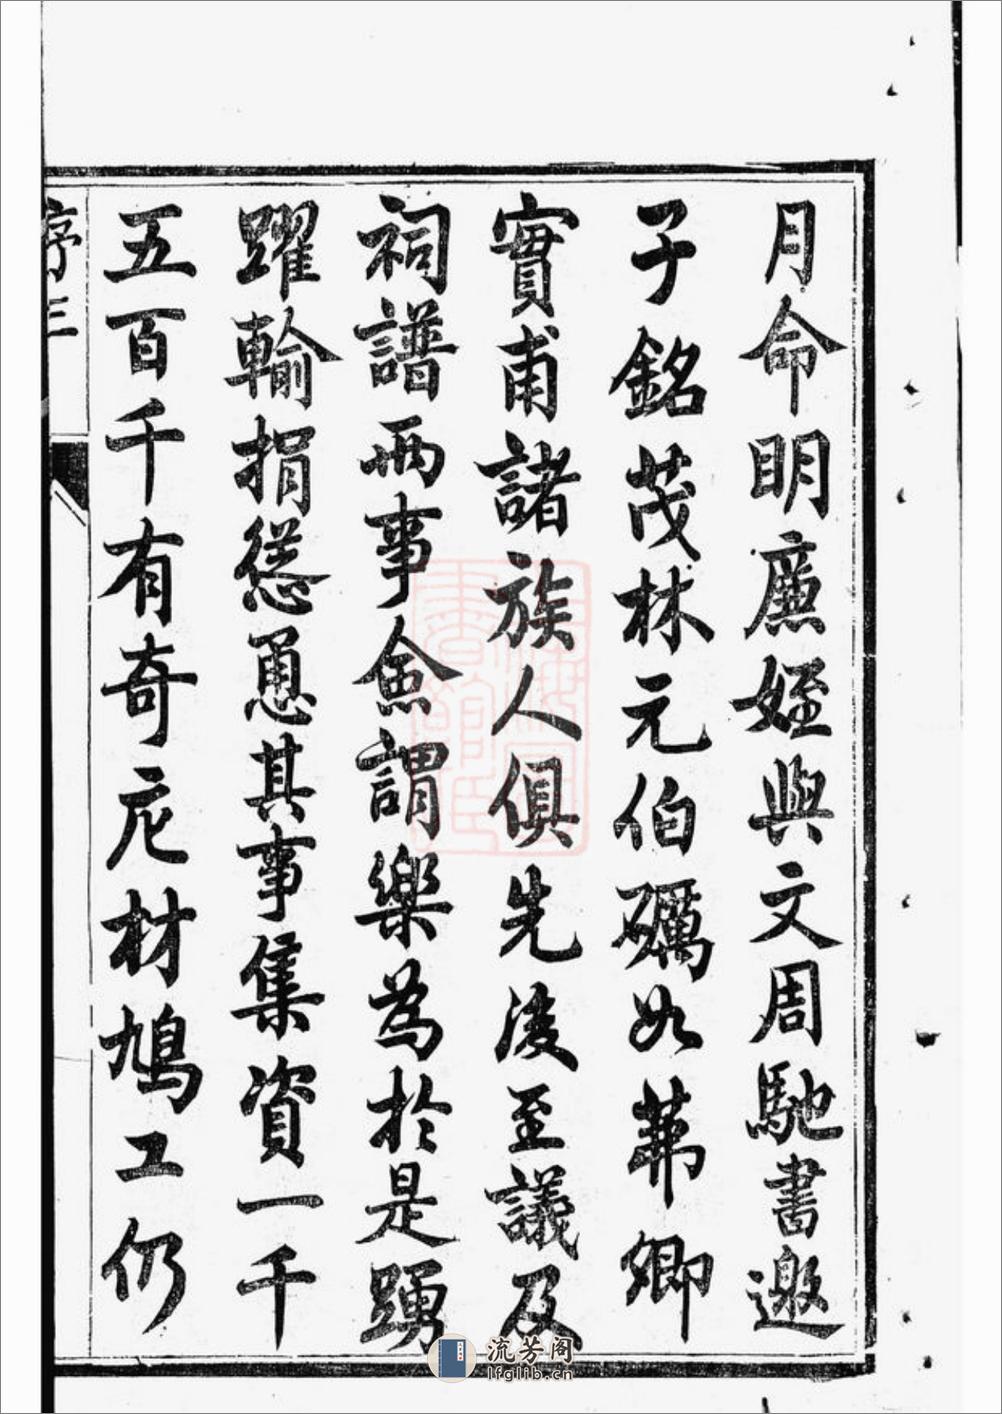 月命明廉姪與文周馳書邀
子銘茂林元伯礪如茀卿
實甫諸族人俱先後至議及
祠譜兩事僉謂樂為於是踴
躍輸捐慫恿其事集資一千
五百千有奇庀材鳩工仍
序 三
流芳阁
lfglib.cn